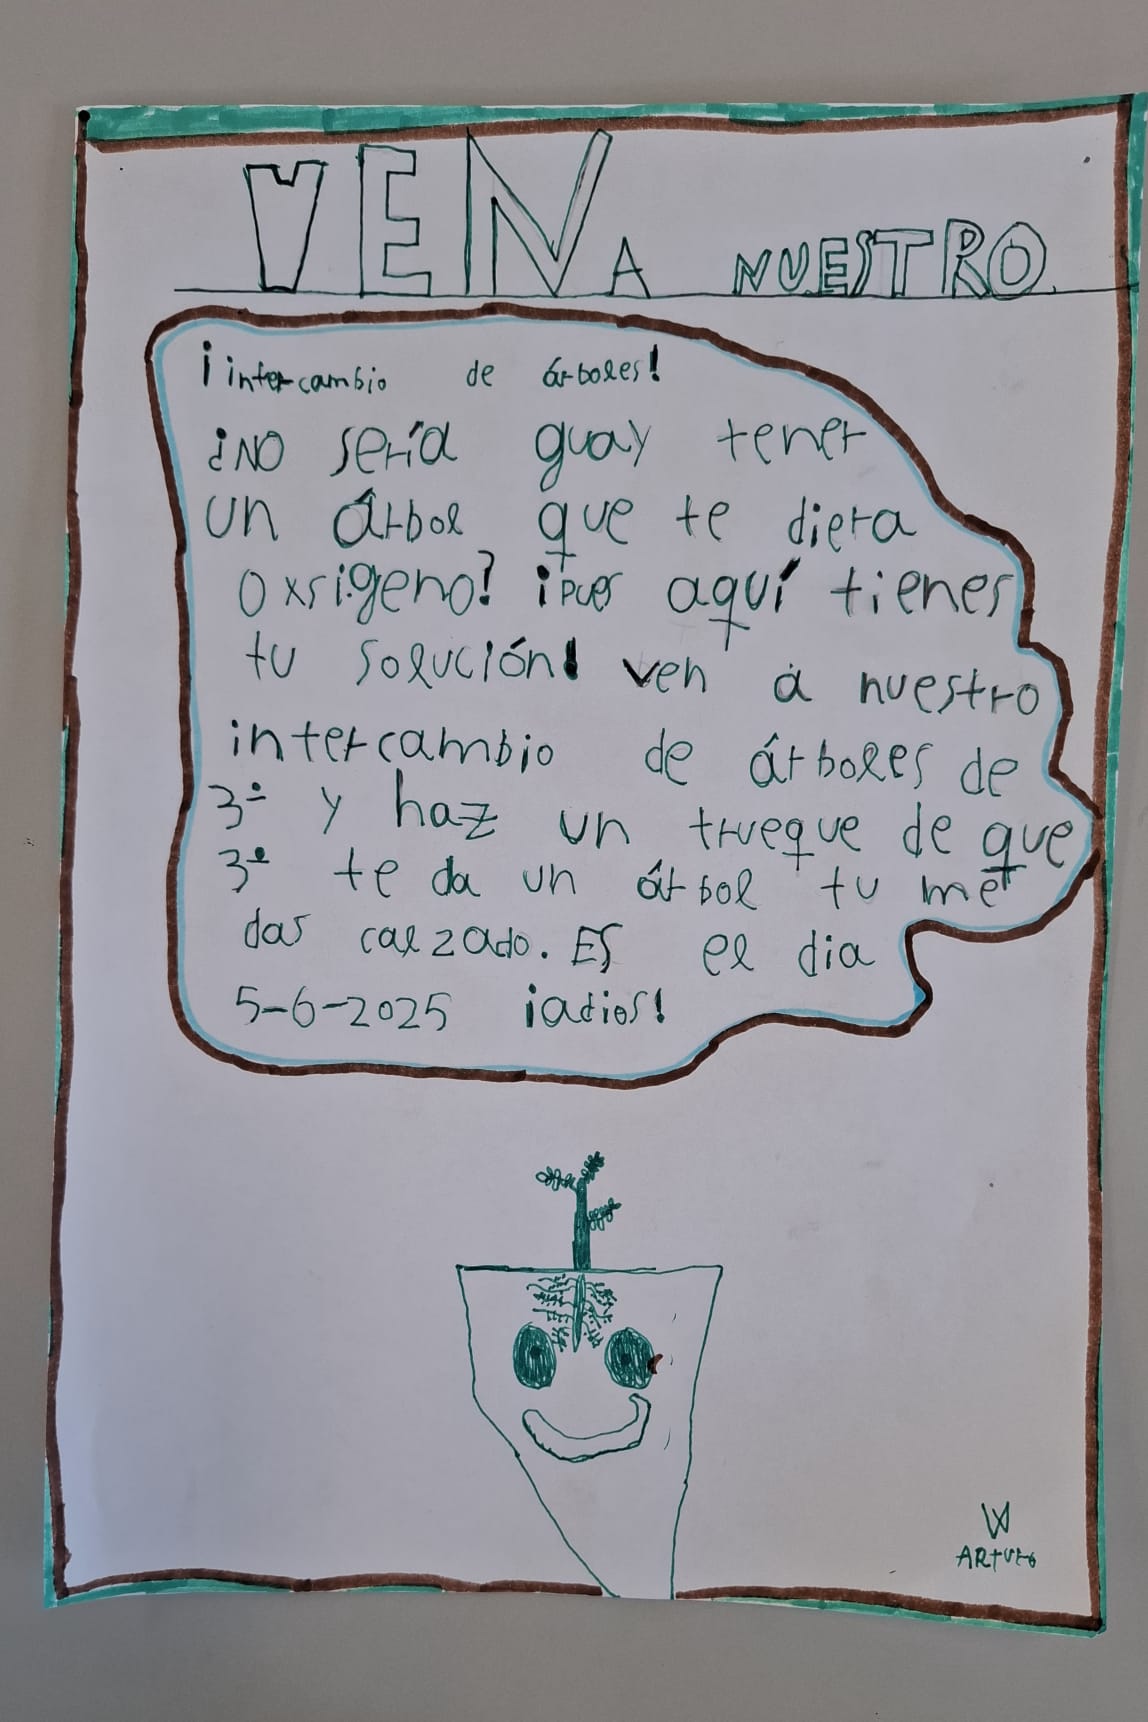 VEN A NUESTRO
¡intercambio de árboles!
¿NO sería guay tener
un árbol que te diera
oxsigeno? ¡Pues aquí tienes
tu solución! ven a nuestro
intercambio de árboles de
3º y haz un trueque de que
3º te da un árbol tu me
das calzado. ES el dia
5-6-2025 ¡adios!
ARturo